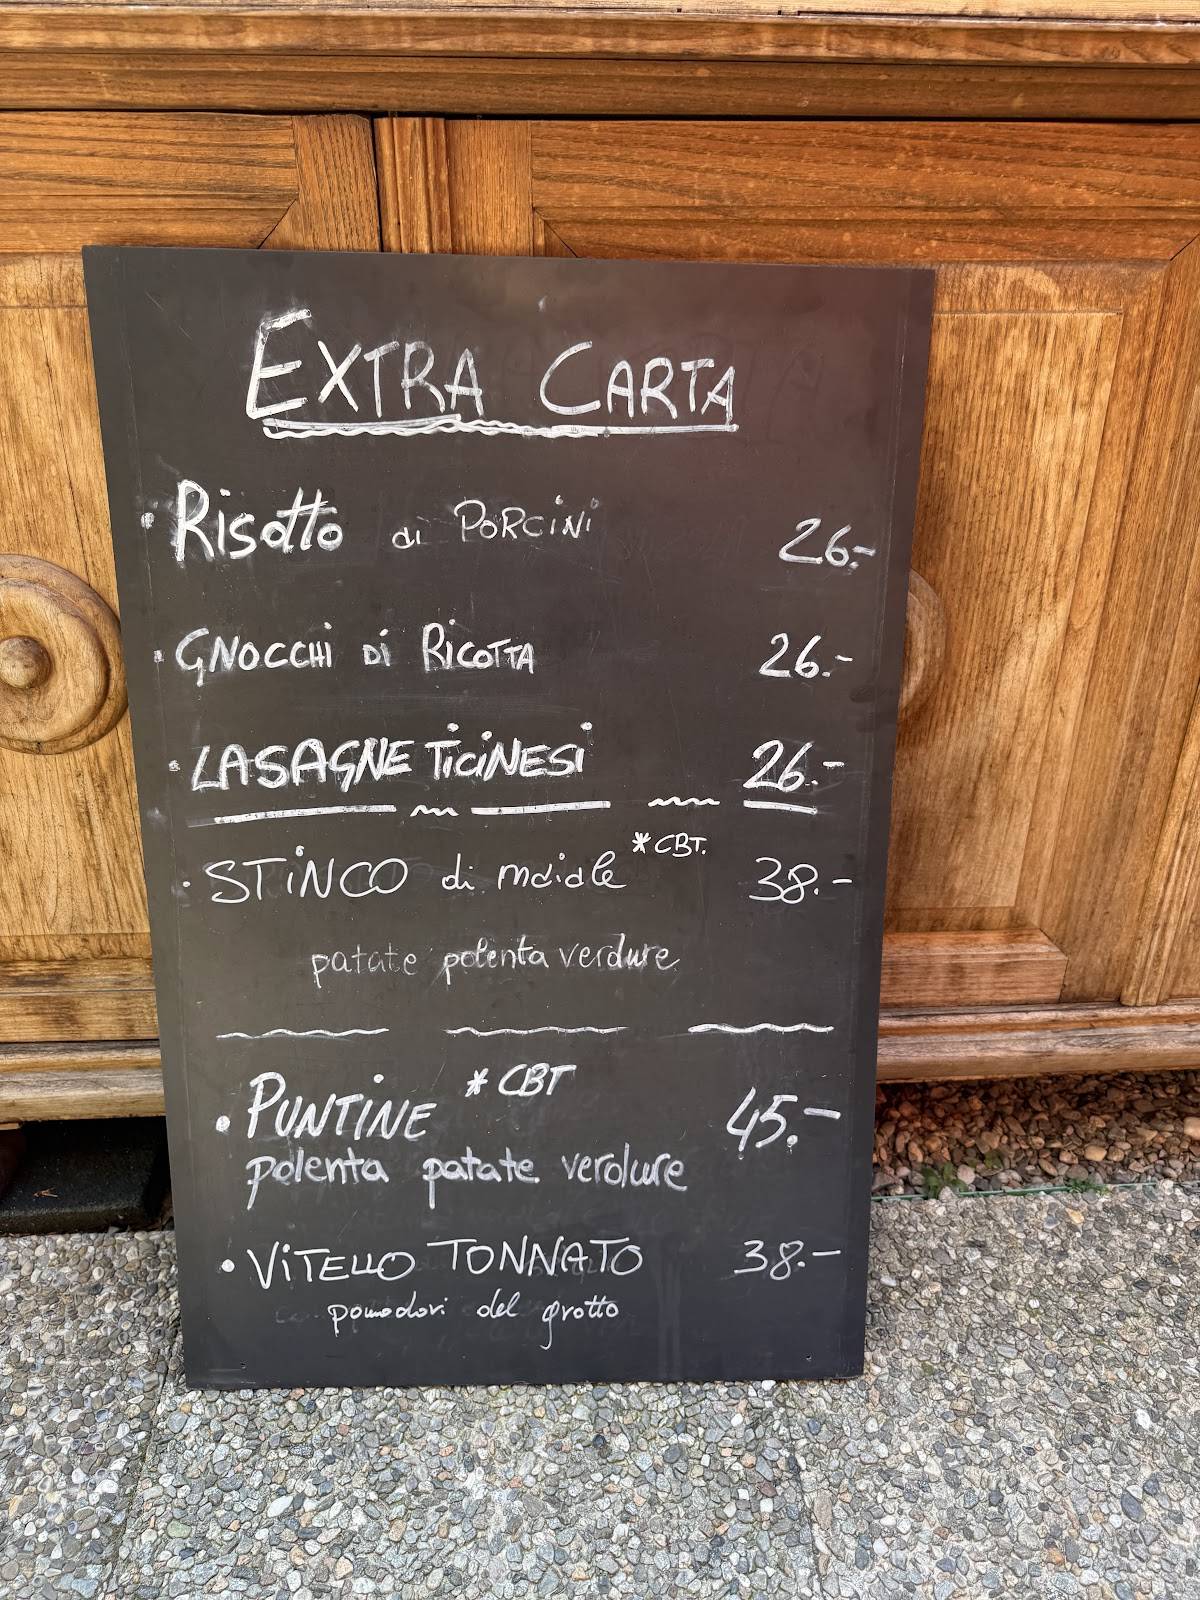 EXTRA CARTA
• Risotto di PORCINI 26.-
• GNOCCHI Di RICOTTA 26.-
• LASAGNE TICINESI 26.-
• STINCO di maiale *CBT. 38.-
patate polenta verdure
• PUNTINE *CBT 45.-
polenta patate verdure
• VITELLO TONNATO 38.-
pomodori del grotto